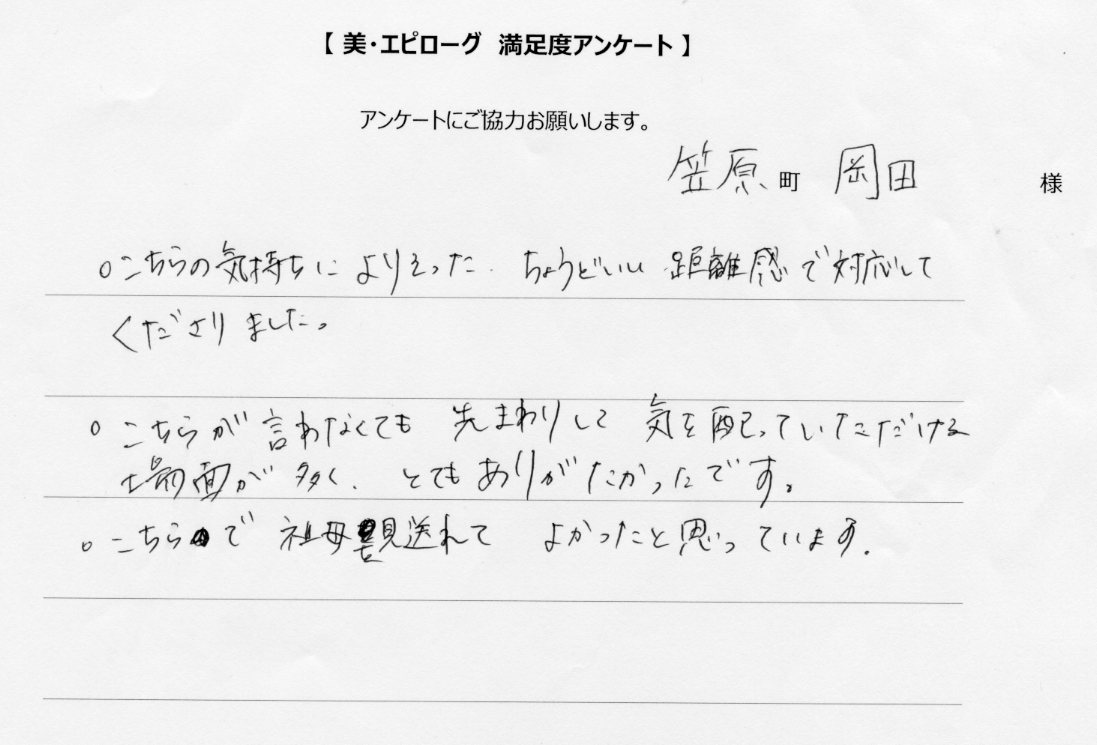 【 美・エピローグ 満足度アンケート 】
アンケートにご協力お願いします。
笠原町 岡田 様
○こちらの気持ちによりそった、ちょうどいい距離感で対応して
くださりました。
○こちらが言わなくても先まわりして気を配っていただける
場面が多く、とてもありがたかったです。
○こちらで祖母を見送れてよかったと思っています。